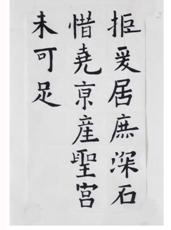 拒爰居庶深石
惜堯亰産聖宮
未可足